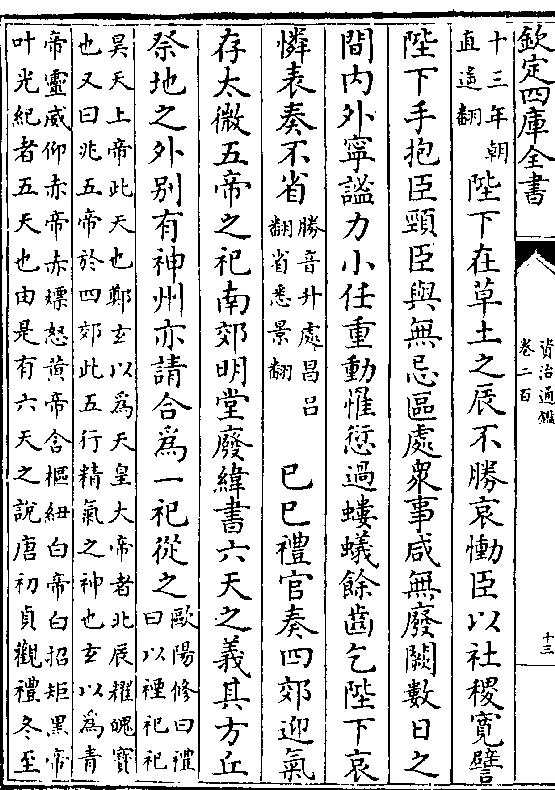 欽定四庫全書
資治通鑑
卷二百
十三
十三年朝
直遙翻
陛下在草土之辰不勝哀慟臣以社稷寛譬
陛下手抱臣頸臣與無忌區處衆事咸無廢闕數日之
間内外寧謐力小任重動惟愆過螻蟻餘齒乞陛下哀
憐表奏不省
勝音升處昌吕
翻省悉景翻
已巳禮官奏四郊迎氣
存太微五帝之祀南郊明堂廢緯書六天之義其方丘
祭地之外别有神州亦請合為一祀從之
歐陽修曰禮
曰以禋祀祀
昊天上帝此天也鄭玄以為天皇大帝者北辰耀魄寶
也又曰兆五帝於四郊此五行精氣之神也玄以為青
帝靈威仰赤帝赤熛怒黄帝含樞紐白帝白招矩黑帝
叶光紀者五天也由是有六天之說唐初貞觀禮冬至